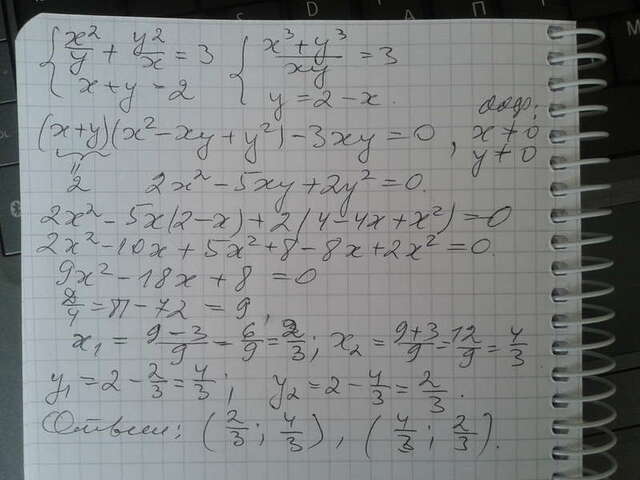 { x²/y + y²/x = 3   { (x³ + y³)/(xy) = 3
x + y - 2   y = 2 - x.
(x + y)(x² - xy + y²) - 3xy = 0, x ≠ 0
y ≠ 0
2   2x² - 5xy + 2y² = 0.
2x² - 5x(2 - x) + 2(4 - 4x + x²) = 0
2x² - 10x + 5x² + 8 - 8x + 2x² = 0.
9x² - 18x + 8 = 0
- 72 = 9,
x₁ = (9 - 3)/9 = 6/9 = 2/3; x₂ = (9 + 3)/9 = 12/9 = 4/3
y₁ = 2 - 2/3 = 4/3; y₂ = 2 - 4/3 = 2/3.
Ответ: (2/3; 4/3), (4/3; 2/3).